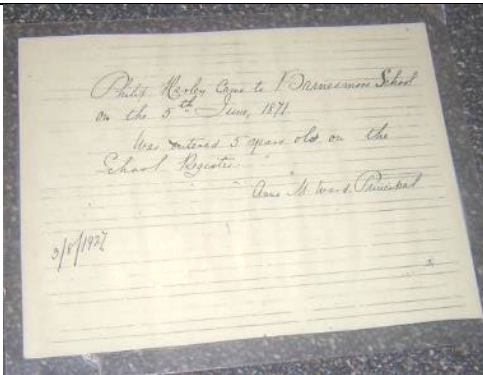 Philip Kerley Came to Barnesmore School
on the 5th June, 1871
Was entered 5 years old on the
School Register.
Ann M. Ward, Principal
3/8/1927